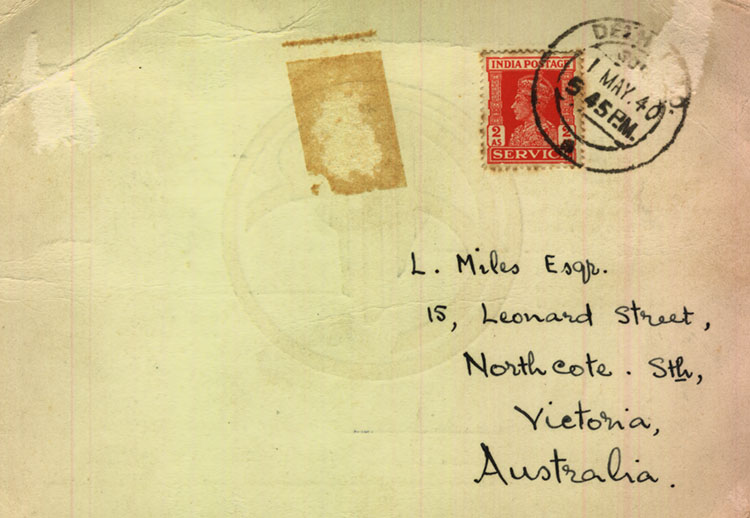 INDIA POSTAGE
2 AS 2
SERVICE
1 MAY. 40
5 45 PM.
L. Miles Esqr.
15, Leonard Street,
Northcote. Sth,
Victoria,
Australia.